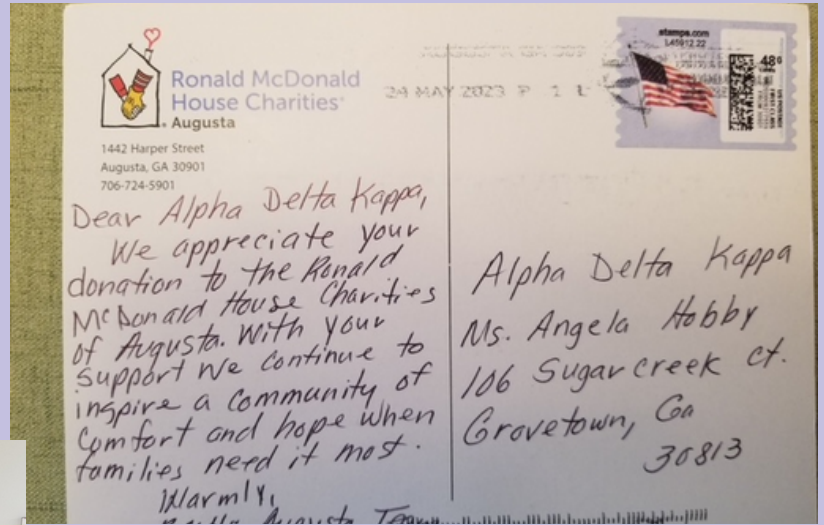 Ronald McDonald
House Charities®
Augusta
1442 Harper Street
Augusta, GA 30901
706-724-5901
stamps.com
48¢
US POSTAGE
FIRST-CLASS
24 MAY 2023 P 1 L
Dear Alpha Delta Kappa,
We appreciate your
donation to the Ronald
McDonald House Charities
of Augusta. With your
support we continue to
inspire a community of
comfort and hope when
families need it most.
Warmly,
Augusta Team
Alpha Delta Kappa
Ms. Angela Hobby
106 Sugarcreek ct.
Grovetown, Ga
30813